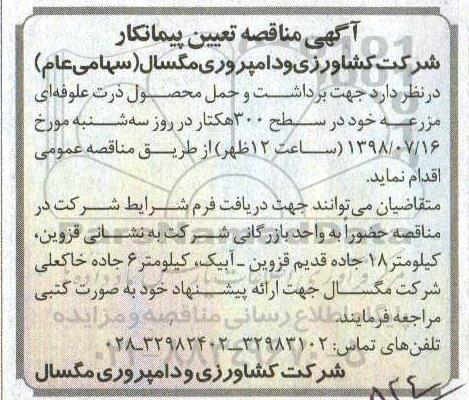 آگهی مناقصه تعیین پیمانکار
شرکت کشاورزی و دامپروری مگسال (سهامی عام)
در نظر دارد جهت برداشت و حمل محصول ذرت علوفه‌ای
مزرعه خود در سطح ۳۰۰ هکتار در روز سه‌شنبه مورخ
۱۳۹۸/۰۷/۱۶ (ساعت ۱۲ ظهر) از طریق مناقصه عمومی
اقدام نماید.
متقاضیان می‌توانند جهت دریافت فرم شرایط شرکت در
مناقصه حضوراً به واحد بازرگانی شرکت به نشانی قزوین،
کیلومتر ۱۸ جاده قدیم قزوین - آبیک، کیلومتر ۶ جاده خاکعلی
شرکت مگسال جهت ارائه پیشنهاد خود به صورت کتبی
مراجعه فرمایند.
تلفن‌های تماس: ۳۲۹۸۳۱۰۲-۳۲۹۸۲۴۰۲-۰۲۸
شرکت کشاورزی و دامپروری مگسال